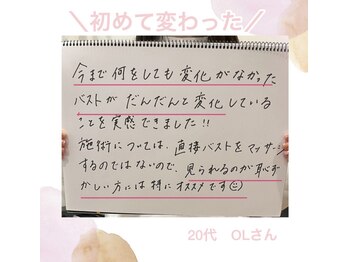 ＼初めて変わった／
今まで何をしても変化がなかった
バストがだんだんと変化している
ことを実感できました!!
施術については、直接バストをマッサージ
するのではないので、見られるのが恥ず
かしい方には特にオススメです☺
20代　OLさん